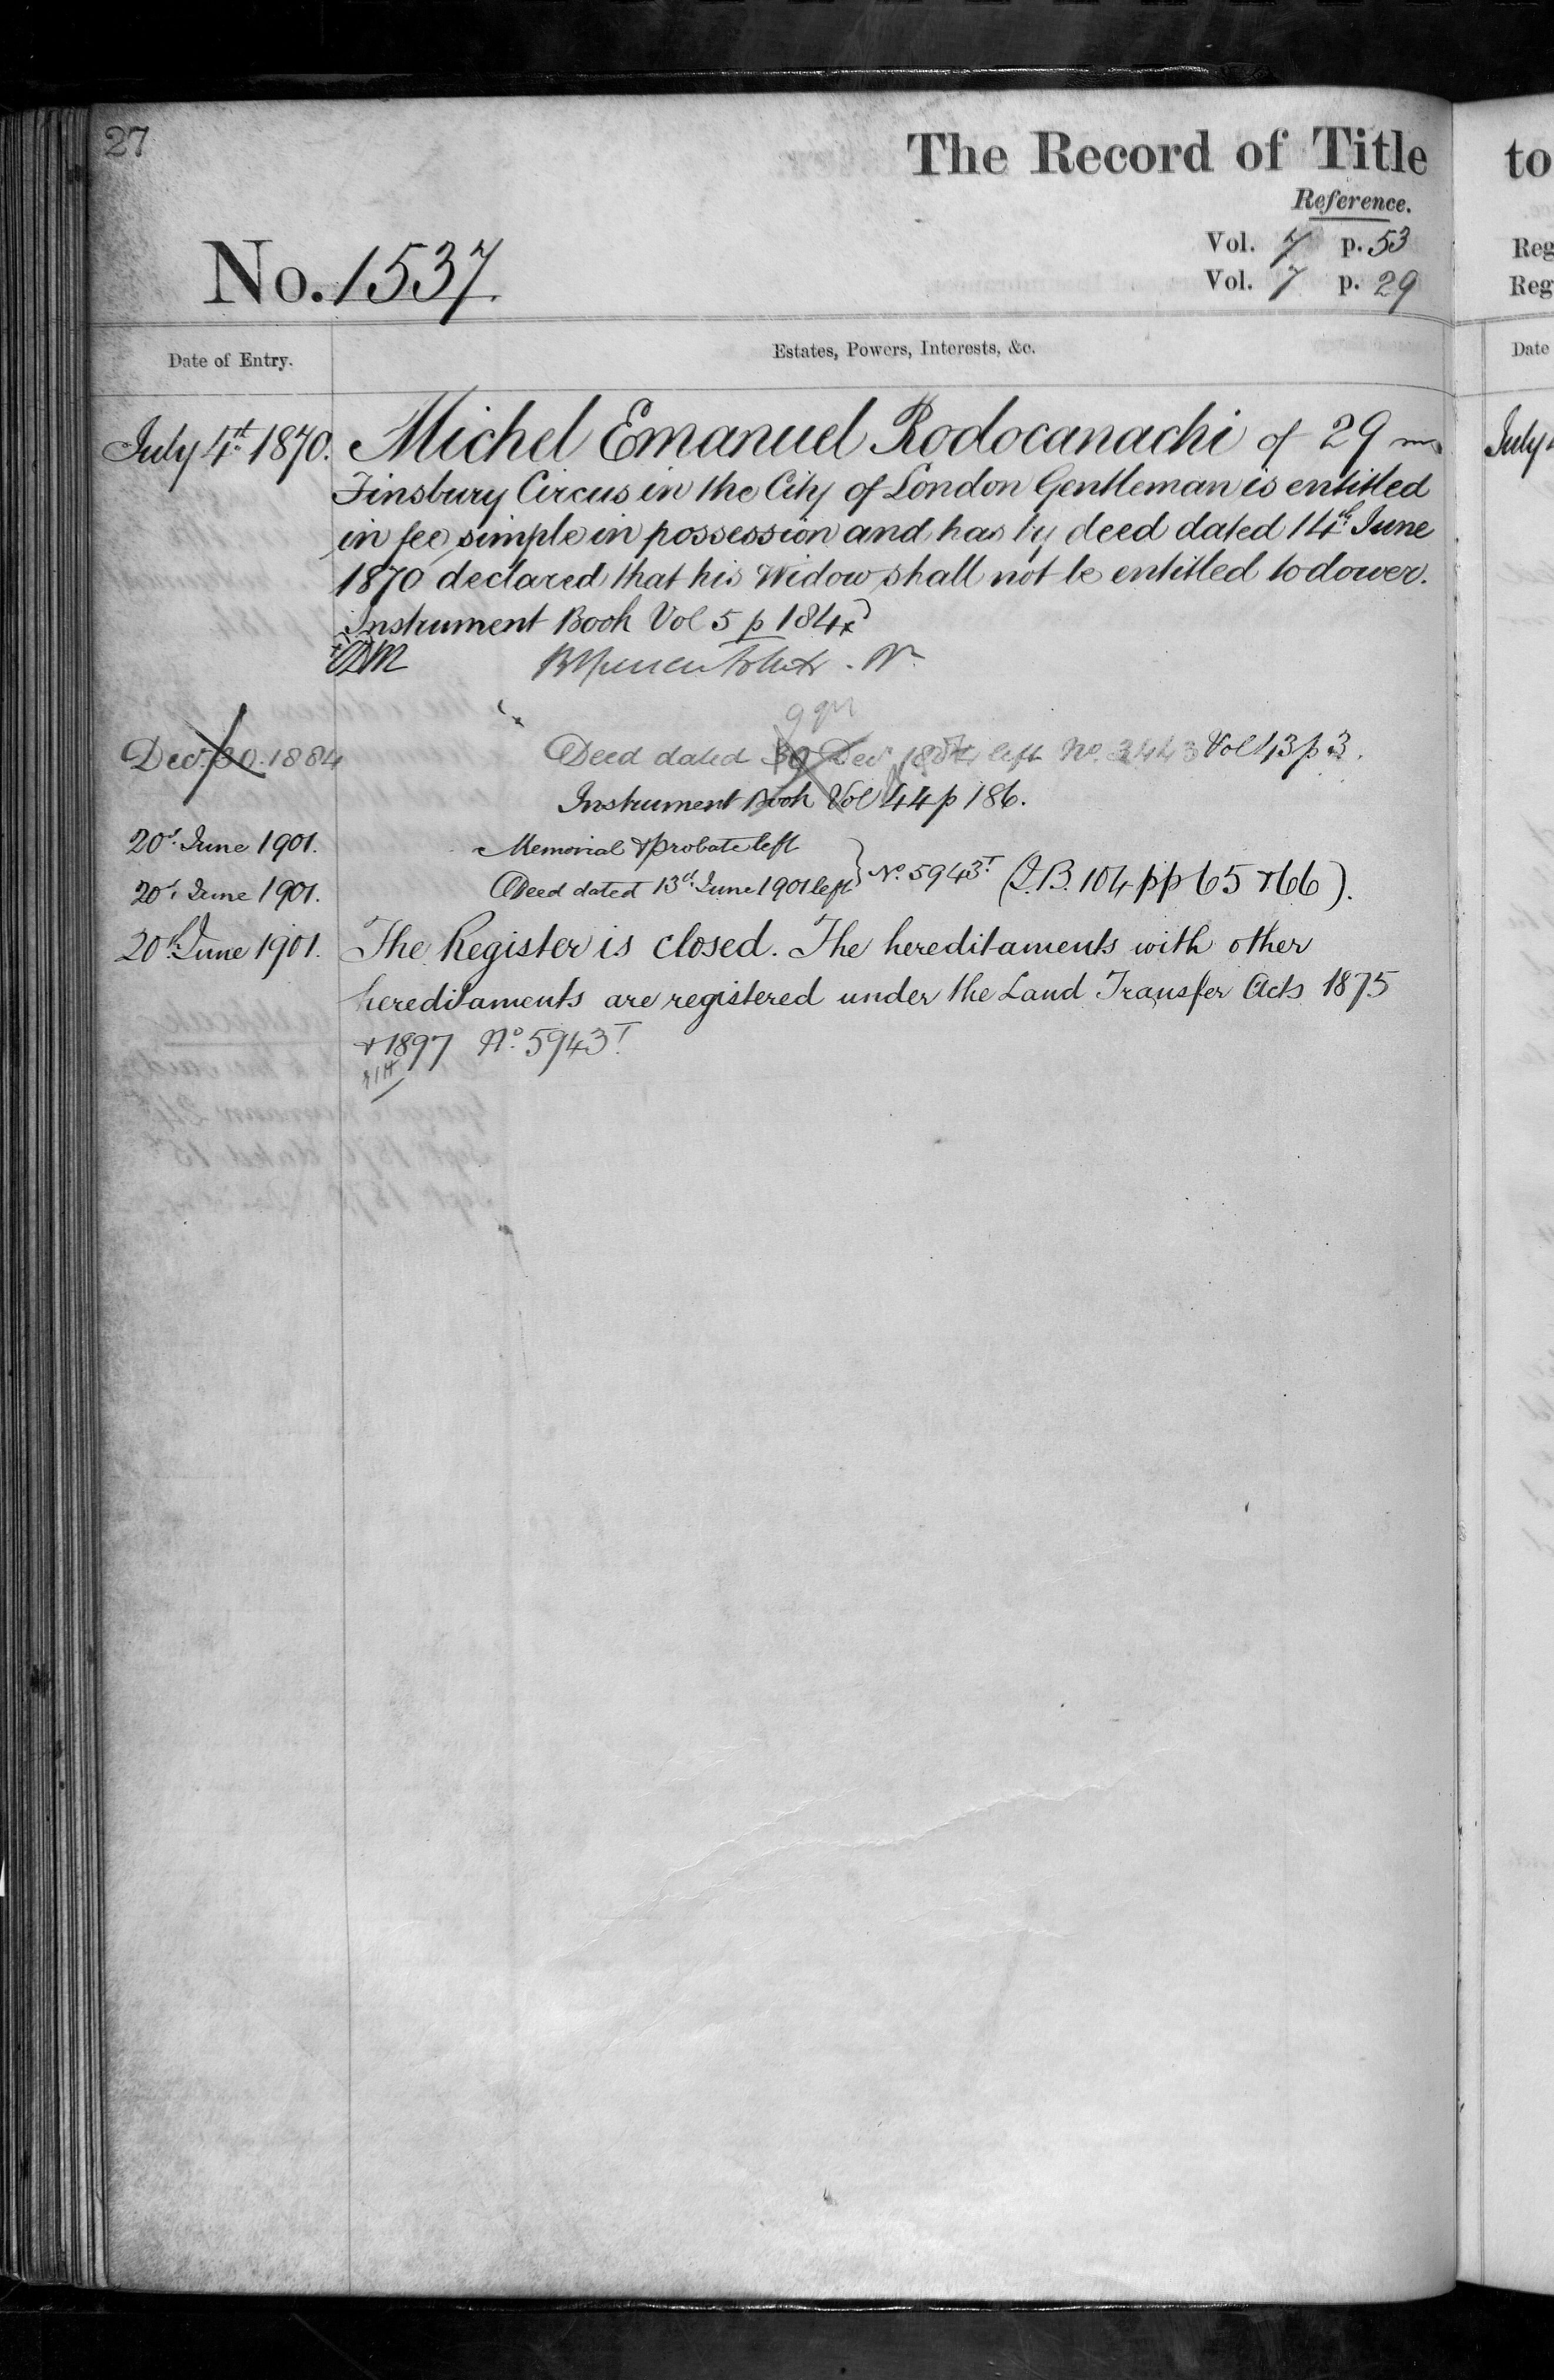 27
The Record of Title
Reference.
Vol. 7 p. 53
Vol. 7 p. 29
No. 1537
Date of Entry.
Estates, Powers, Interests, &c.
July 4th 1870. Michel Emanuel Rodocanachi of 29
Finsbury Circus in the City of London Gentleman is entitled
in fee simple in possession and has by deed dated 14th June
1870 declared that his Widow shall not be entitled to dower.
Instrument Book Vol 5 p 184
Decr 30. 1884 Deed dated 30 Decr left No. 3443 Vol 13 p 3.
Instrument Book Vol 44 p 186.
20th June 1901. Memorial & probate left
20th June 1901. Deed dated 13th June 1901 left } No. 5943T (I.B. 104 pp 65 & 66).
20th June 1901. The Register is closed. The hereditaments with other
hereditaments are registered under the Land Transfer Acts 1875
& 1897 No. 5943T.
to
Reg
Reg
Date
July